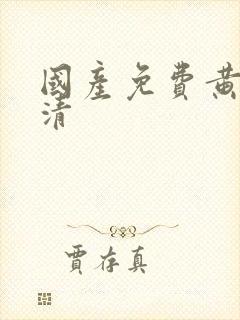 國產免費黃
清
賈存真